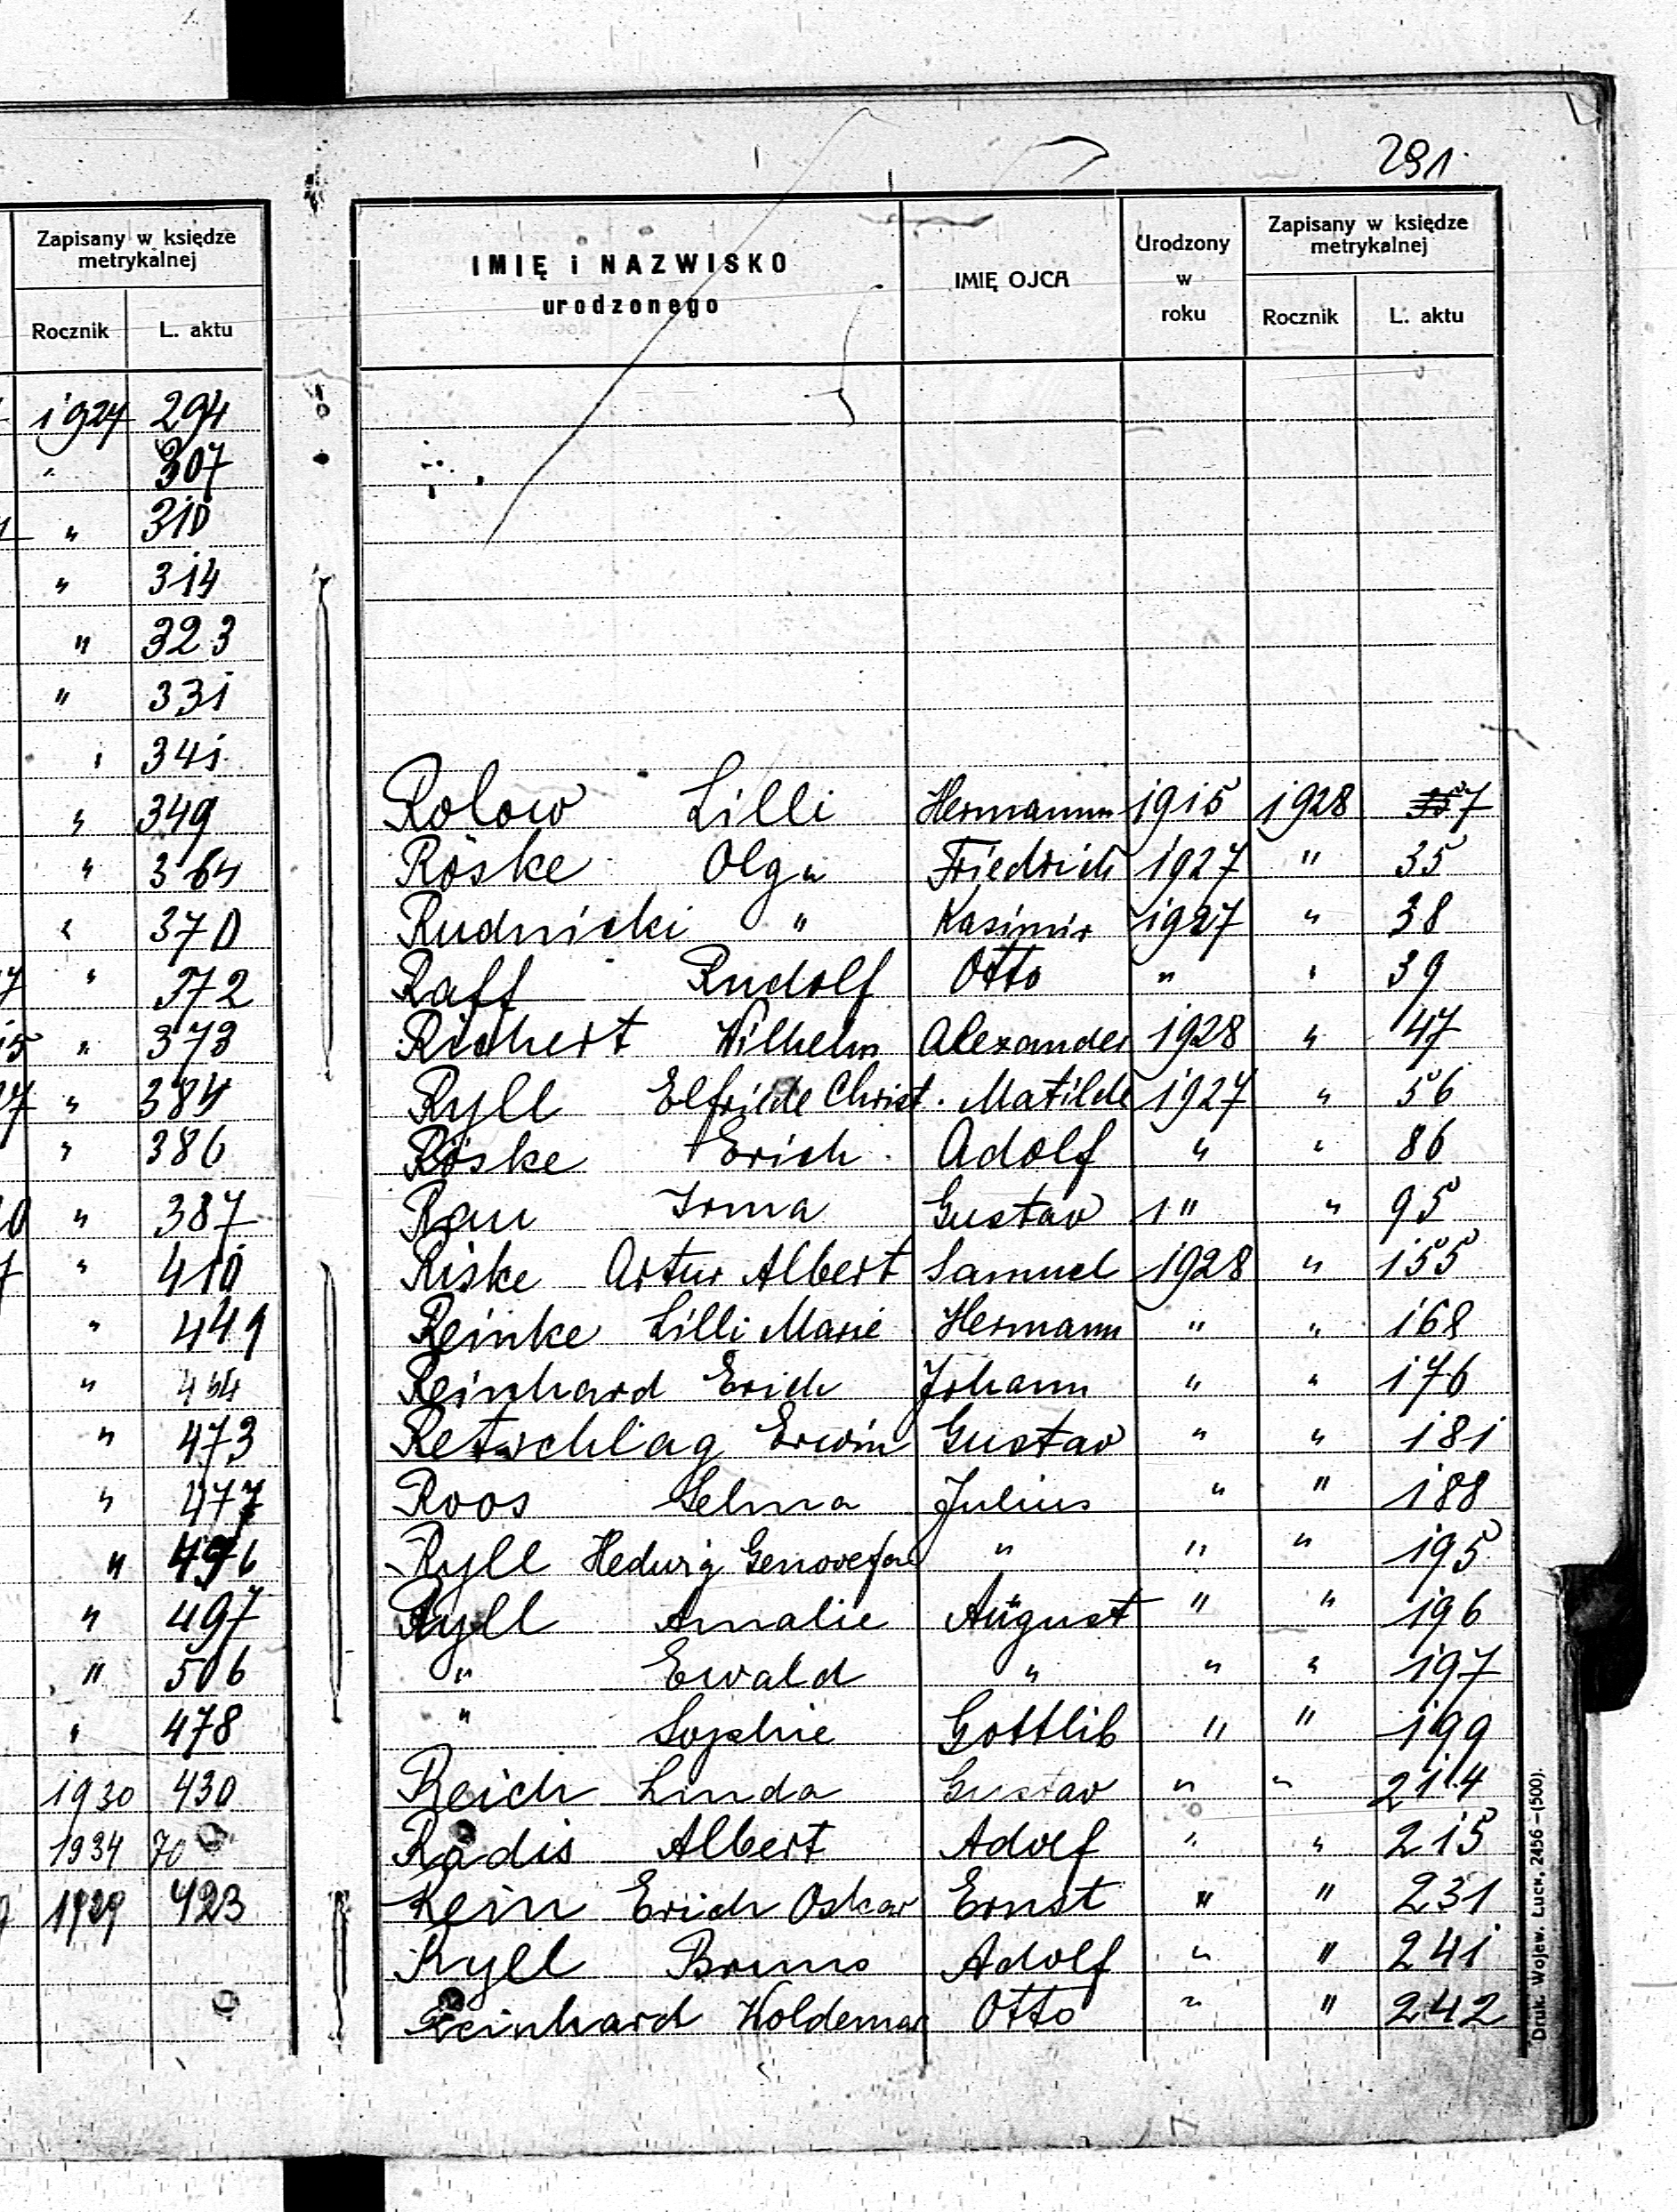 291
Zapisany w księdze
metrykalnej
Rocznik L. aktu
1927 294
" 307
" 310
" 314
" 323
" 331
" 341
" 349
" 364
" 370
" 372
" 373
" 384
" 386
" 387
" 410
" 449
" 464
" 473
" 477
" 496
" 497
" 506
" 478
1930 430
1934 70
1929 423
IMIĘ i NAZWISKO
urodzonego
IMIĘ OJCA
Urodzony
w
roku
Zapisany w księdze
metrykalnej
Rocznik L. aktu
Rolow Lilli Hermann 1915 1928 7
Röske Olga Friedrich 1927 " 35
Rudnicki " Kasimir 1927 " 38
Raff Rudolf Otto " " 39
Richert Wilhelm Alexander 1928 " 47
Ryll Elfriede Christ. Matilde 1927 " 56
Röske Erich Adolf " " 86
Rau Irma Gustav 1" " 95
Riske Artur Albert Samuel 1928 " 155
Reinke Lilli Marie Hermann " " 168
Reinhard Erich Johann " " 176
Retzschlag Erwin Gustav " " 181
Roos Selma Julius " " 188
Ryll Hedwig Genovefa " " " 195
Ryll Amalie August " " 196
" Ewald " " " 197
" Sophie Gottlib " " 199
Reich Linda Gustav " " 214
Radis Albert Adolf " " 215
Rein Erich Oskar Ernst " " 231
Ryll Bruno Adolf " " 241
Reinhard Woldemar Otto " " 242
Druk. Wojew. Łuck. 2456—(500).